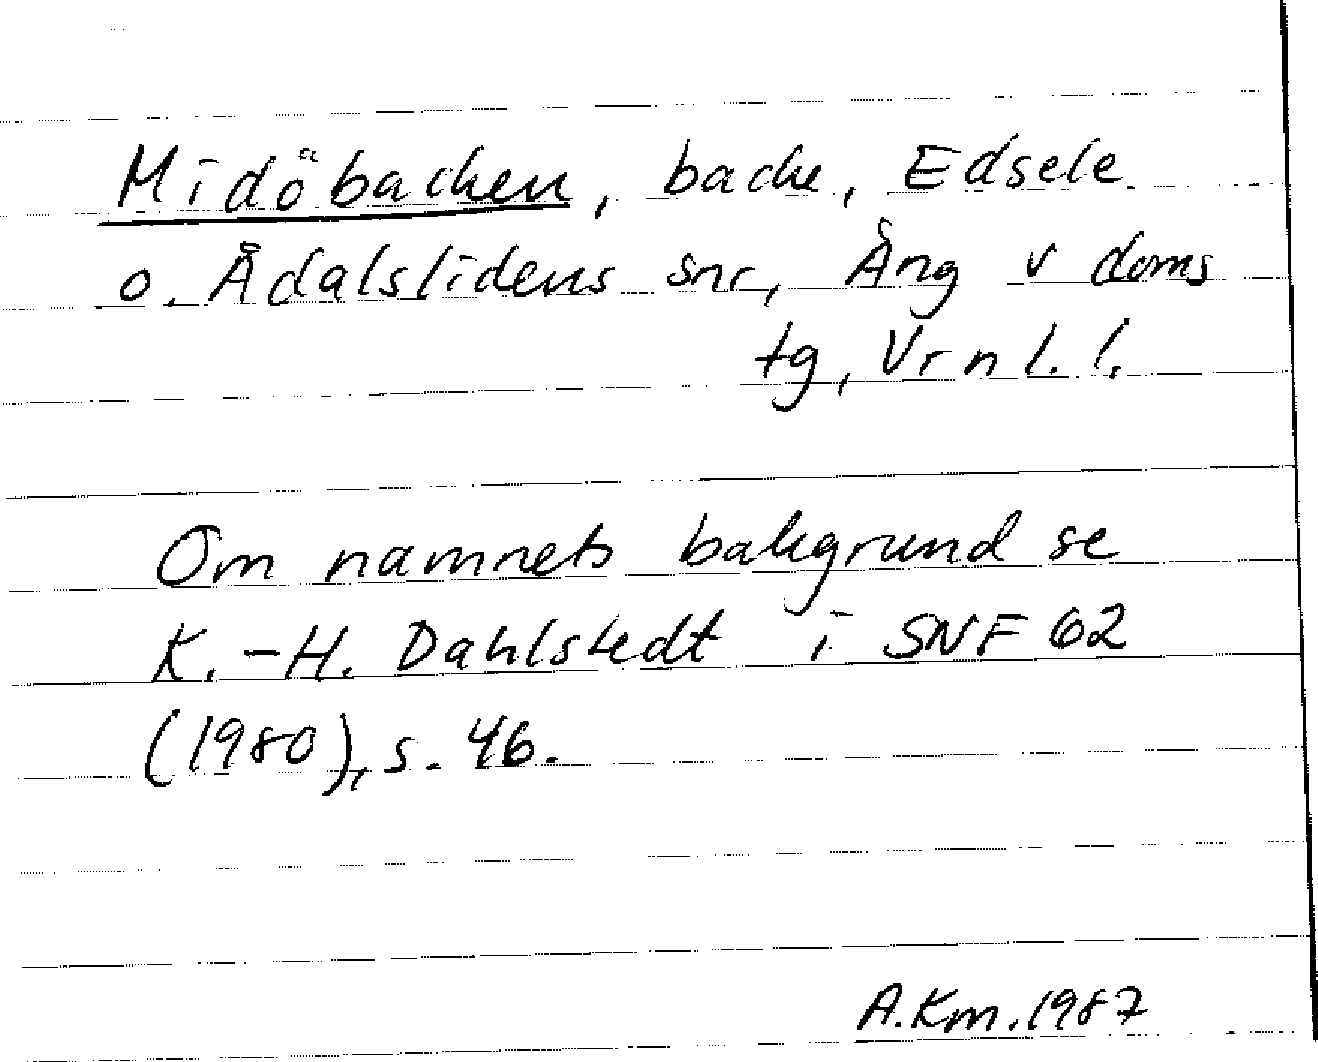 Midöbacken, backe, Edsele
o. Ådalslidens snr, Ång v doms
tg, Vrnl. l.
Om namnets bakgrund se
K.-H. Dahlstedt i SNF 62
(1980), s. 46.
A.Km. 1987